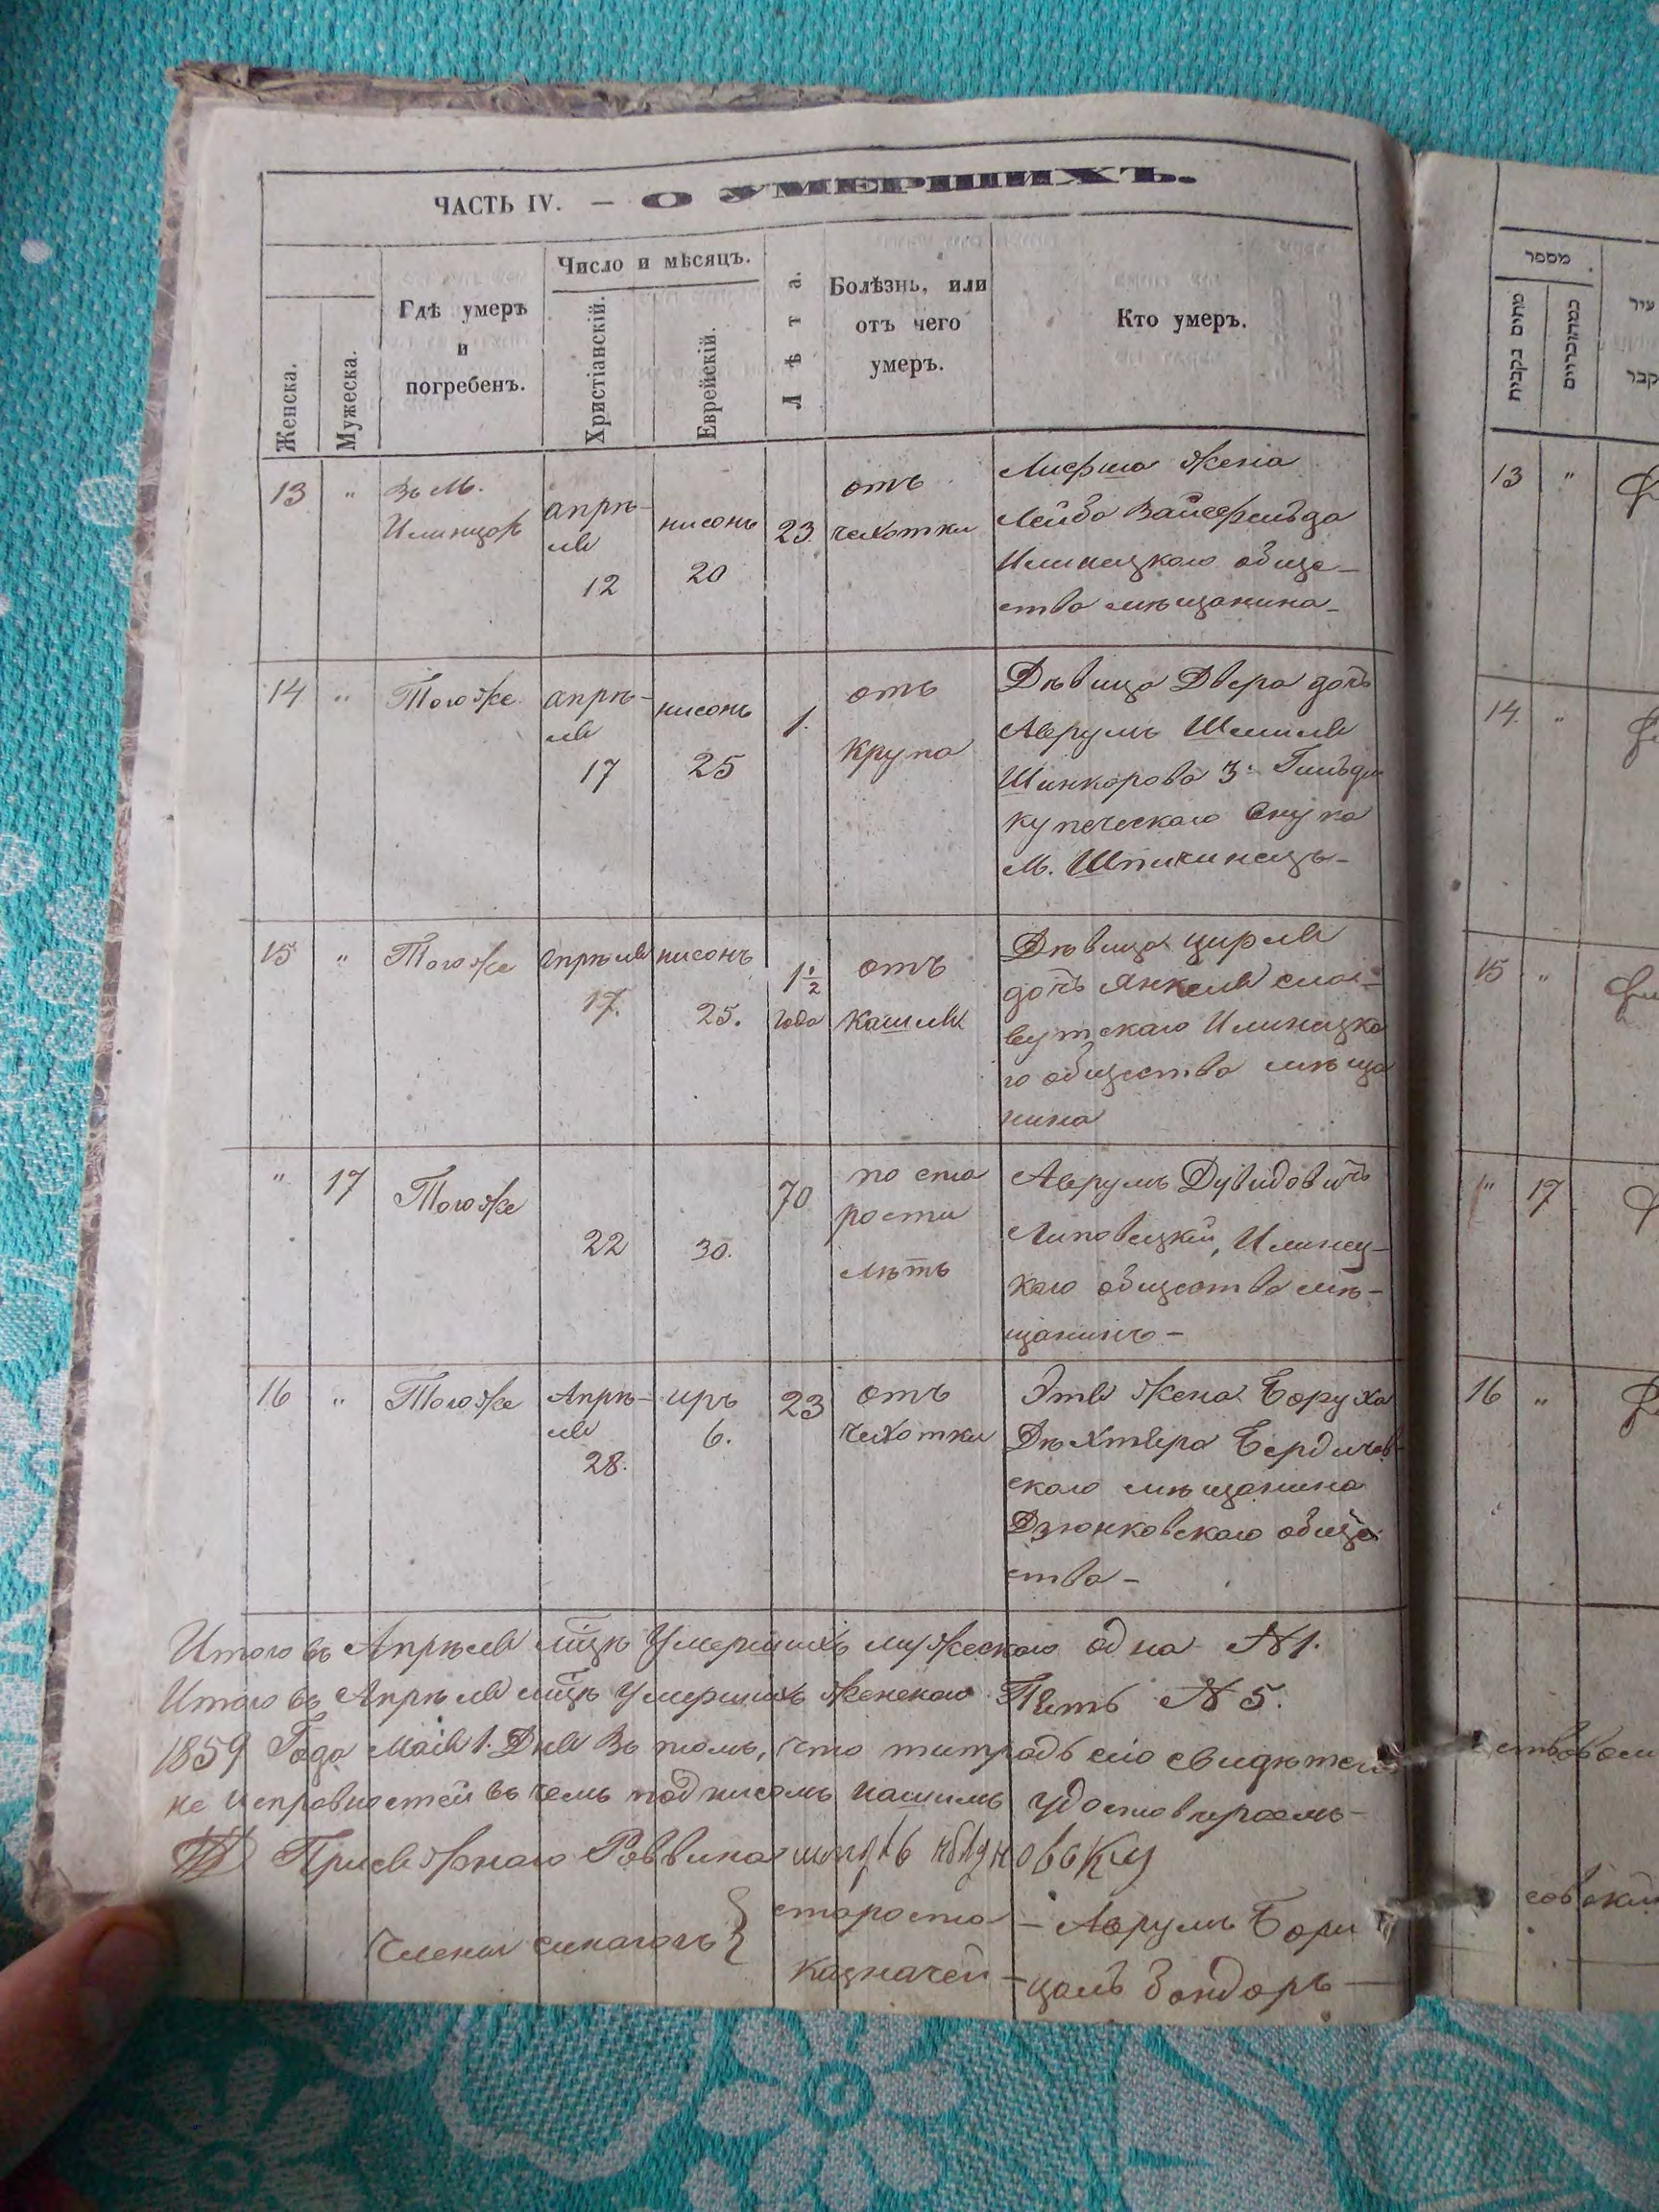 ЧАСТЬ IV. — О УМЕРШИХЪ.
Женска.
Мужеска.
Гдѣ умеръ
и
погребенъ.
Число и мѣсяцъ.
Христіанскій.
Еврейскій.
Лѣта.
Болѣзнь, или
отъ чего
умеръ.
Кто умеръ.
13
"
Въ М.
Илинцахъ
апрѣ-
ля
12
нисонъ
20
23
отъ
чехотки
жена
Лейба Вайсфельда
Илинецкаго обще-
ства мѣщанина-
14
"
Тогоже
апрѣ-
ля
17
нисонъ
25
1.
отъ
крупа
Дѣвица Двера дочь
Аврумъ Шмиля
Шинкарова 3. Гильди
купеческаго
М. Шпичинецъ-
15
"
Тогоже
апрѣля
17.
нисонъ
25.
1½
года
отъ
кашля
Дѣвица Цирля
дочь Янкеля сла-
вутскаго Илинецка
го общества мѣща
нина
"
17
Тогоже
22
30.
70
по ста
рости
лѣтъ
Аврумъ Дувидовичъ
Липовецкій, Илинец-
каго общества мѣ-
щанинъ-
16
"
Тогоже
Апрѣ-
ля
28.
иръ
6.
23
отъ
чехотки
Этя жена Боруха
Дѣхтяра Бердичев-
скаго мѣщанина
Дзюнковскаго обще
ства-
Итого въ Апрѣля мцѣ Умершихъ мужескаго одна N 1.
Итого въ Апрѣля мцѣ Умершихъ женскаго Пять N 5.
1859 Года Маія 1. Дня Въ томъ, что титрадь сію
въ чемъ подписомъ нашимъ удостовѣраемъ-
Присяжнаго Раввина
Члены синагогъ
староста - Аврумъ
казначей -
מספר
13 "
14 "
15 "
" 17
16 "